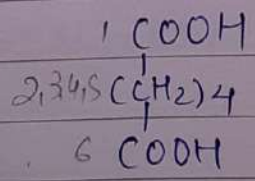 1 COOH
2,3,4,5 (CH2)4
6 COOH